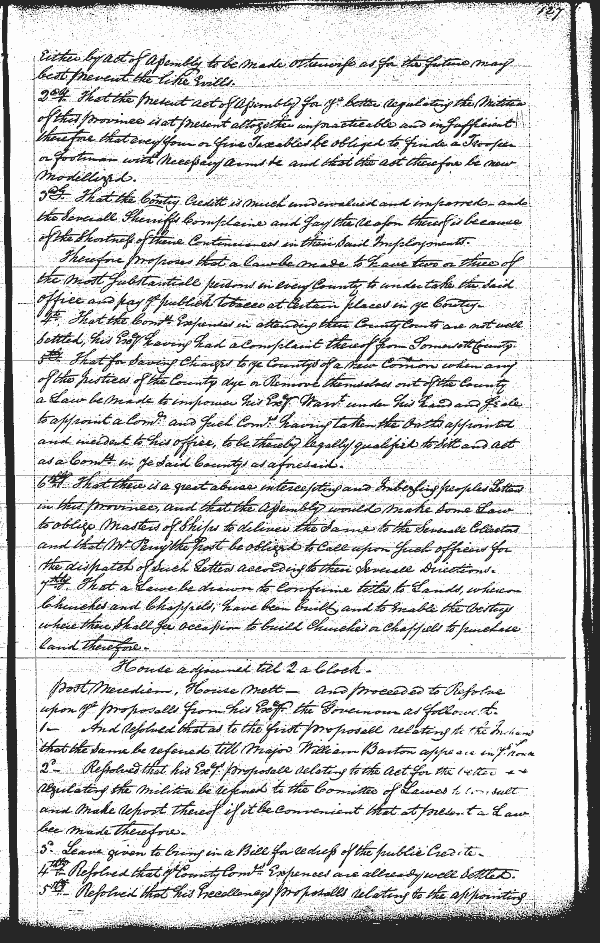 127
Either by Act of Assembly to be made otherwise as for the future may
best prevent the like Evills.
2dly. That the present Act of Assembly for ye better regulating the Militia
of this province is at present altogether impracticable and insufficient
therefore that every four or five Taxables be obliged to finde a Trooper
or footman with necessary Arms &c and that the Act therefore be new
modellized.
3dly. That the County Creditt is much undervalued and impaired and
the Severall Sherriffs Complaine and Say the reason thereof is because
of the Shortness of there Continuances in their Said Imployments.
Therefore proposes that a law be made to have two or three of
the most Substantiall persons in every County to undertake the Said
office and pay ye publick tobacco at Certain places in ye County.
4th. That the Comrs Expenses in attending their County Courts are not well
settled, his Exy having had a Complaint thereof from Somersett County.
5th. That for Saving Charges to ye Countys of a new Comon when any
of the Justices of the County dye or Remove themselves out of the County
a Law be made to impower his Exy Warrt under his hand and Seale
to appoint a Comr and Such Comr having taken the Oaths appointed
and incident to his office, to be thereby legally qualified to Sitt and act
as a Comr in ye Said Countys as aforesaid.
6thly. That there is a great abuse intercepting and Imbezling peoples Letters
in this province, and that the Assembly would make Some Law
to oblige Masters of Ships to deliver the Same to the Severall Collectors
and that Mr Perry the post be obliged to Call upon Such officers for
the dispatch of Such Letters according to their Severall Directions.
7thly. That a Lawe be drawn to Confirme titles to Lands, whereon
Churches and Chappels, have been built, and to Enable the Vestrys
where there Shall be occasion to build Churches or Chappels to purchase
land therefore.
House adjourned till 2 a Clock.
post Merediem, House Mett and proceeded to Resolve
upon ye proposalls from his Exy the Governour as followeth.
1 And resolved that as to the first proposall relating to the Indians
that the same be referred till Major William Barton appeare in ye house
2d Resolved that his Exy. proposalls relating to the Act for the better
regulating the militia be referred to the Comittee of Lawes to consult
and make report thereof if it be convenient that at present a Law
bee made therefore.
3d. Leave given to bring in a Bill for redress of the publick Credite.
4thly. Resolved that ye County Comrs Expences are allready well settled.
5thly. Resolved that his Excellencys proposalls relating to the appointing